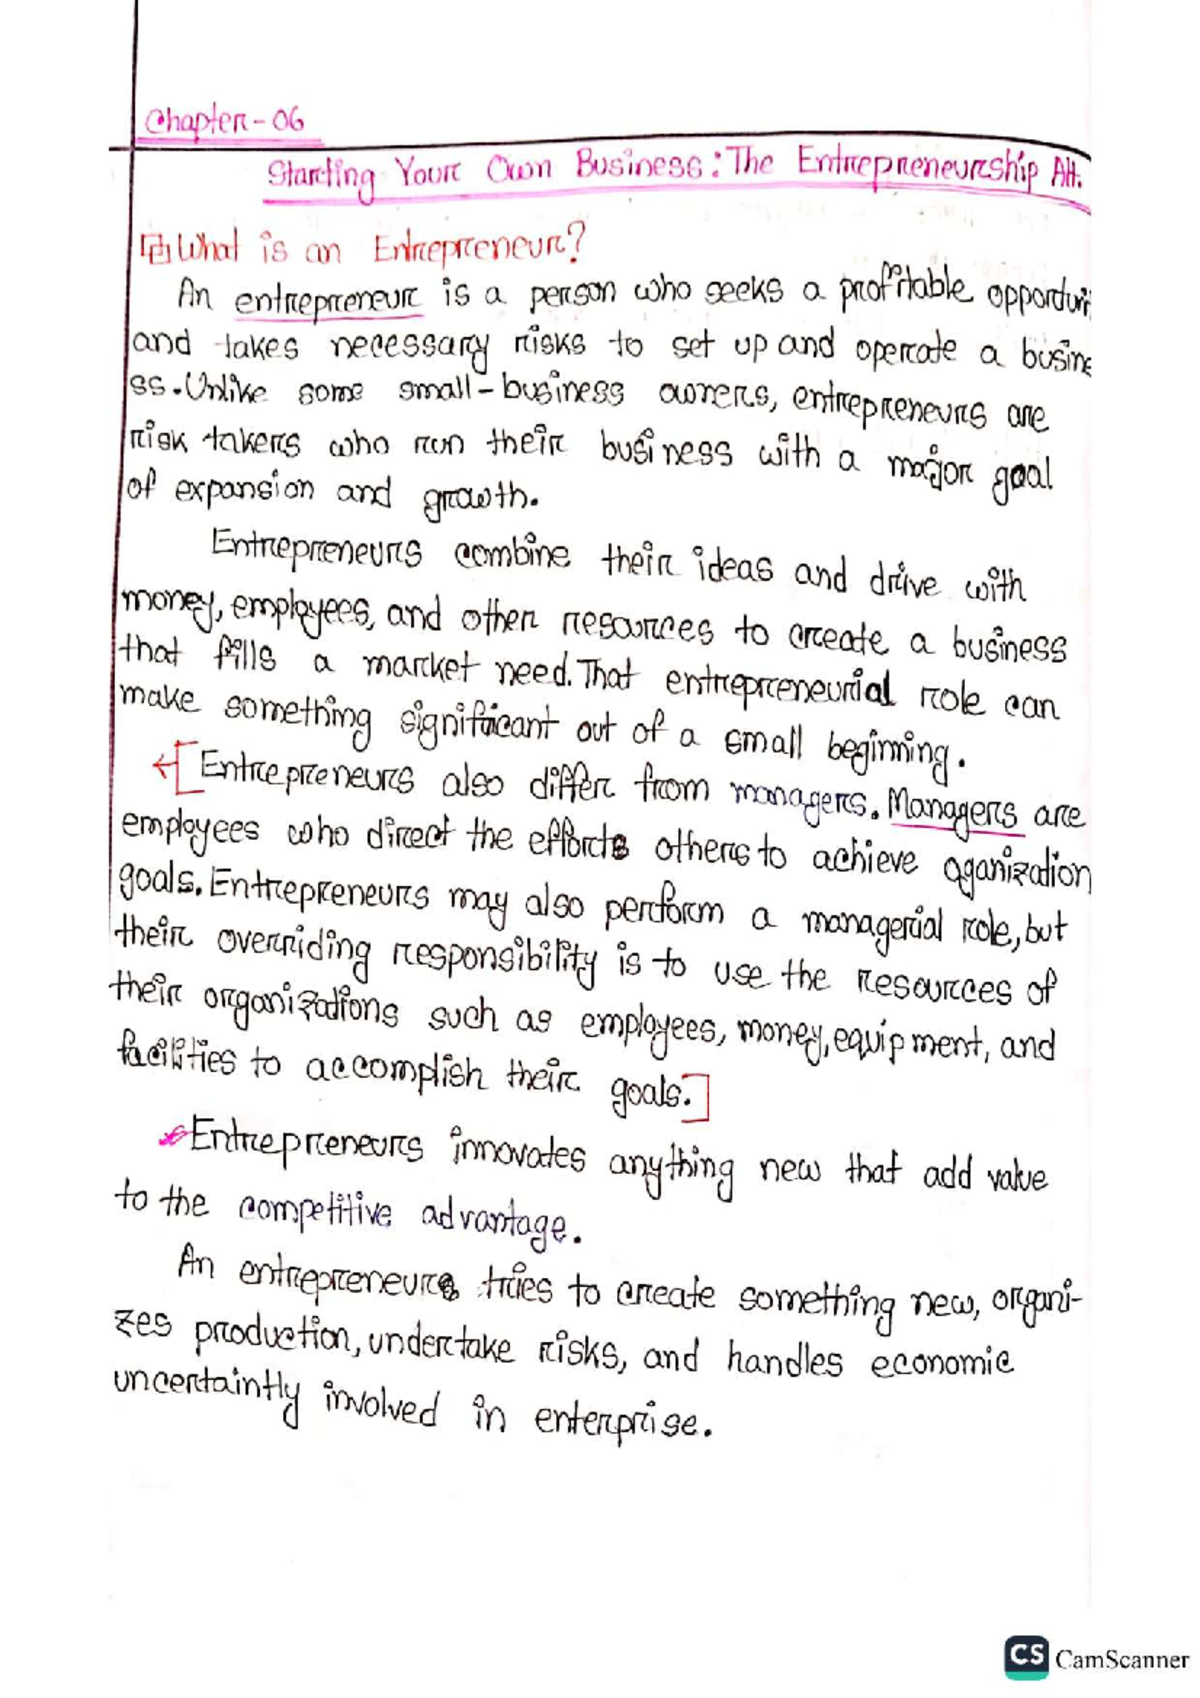 Chapter-06
Starting Your Own Business: The Entrepreneurship Alt.
What is an Entrepreneur?
An entrepreneur is a person who seeks a profitable opportuni
and takes necessary risks to set up and operate a busine
ss. Unlike some small-business owners, entrepreneurs are
risk takers who run their business with a major goal
of expansion and growth.
Entrepreneurs combine their ideas and drive with
money, employees, and other resources to create a business
that fills a market need. That entrepreneurial role can
make something significant out of a small beginning.
[Entrepreneurs also differ from managers. Managers are
employees who direct the efforts others to achieve oganization
goals. Entrepreneurs may also perform a managerial role, but
their overriding responsibility is to use the resources of
their organizations such as employees, money, equipment, and
facilities to accomplish their goals.]
Entrepreneurs innovates anything new that add value
to the competitive advantage.
An entrepreneurs tries to create something new, organi-
zes production, undertake risks, and handles economic
uncertaintly involved in enterprise.
CS CamScanner